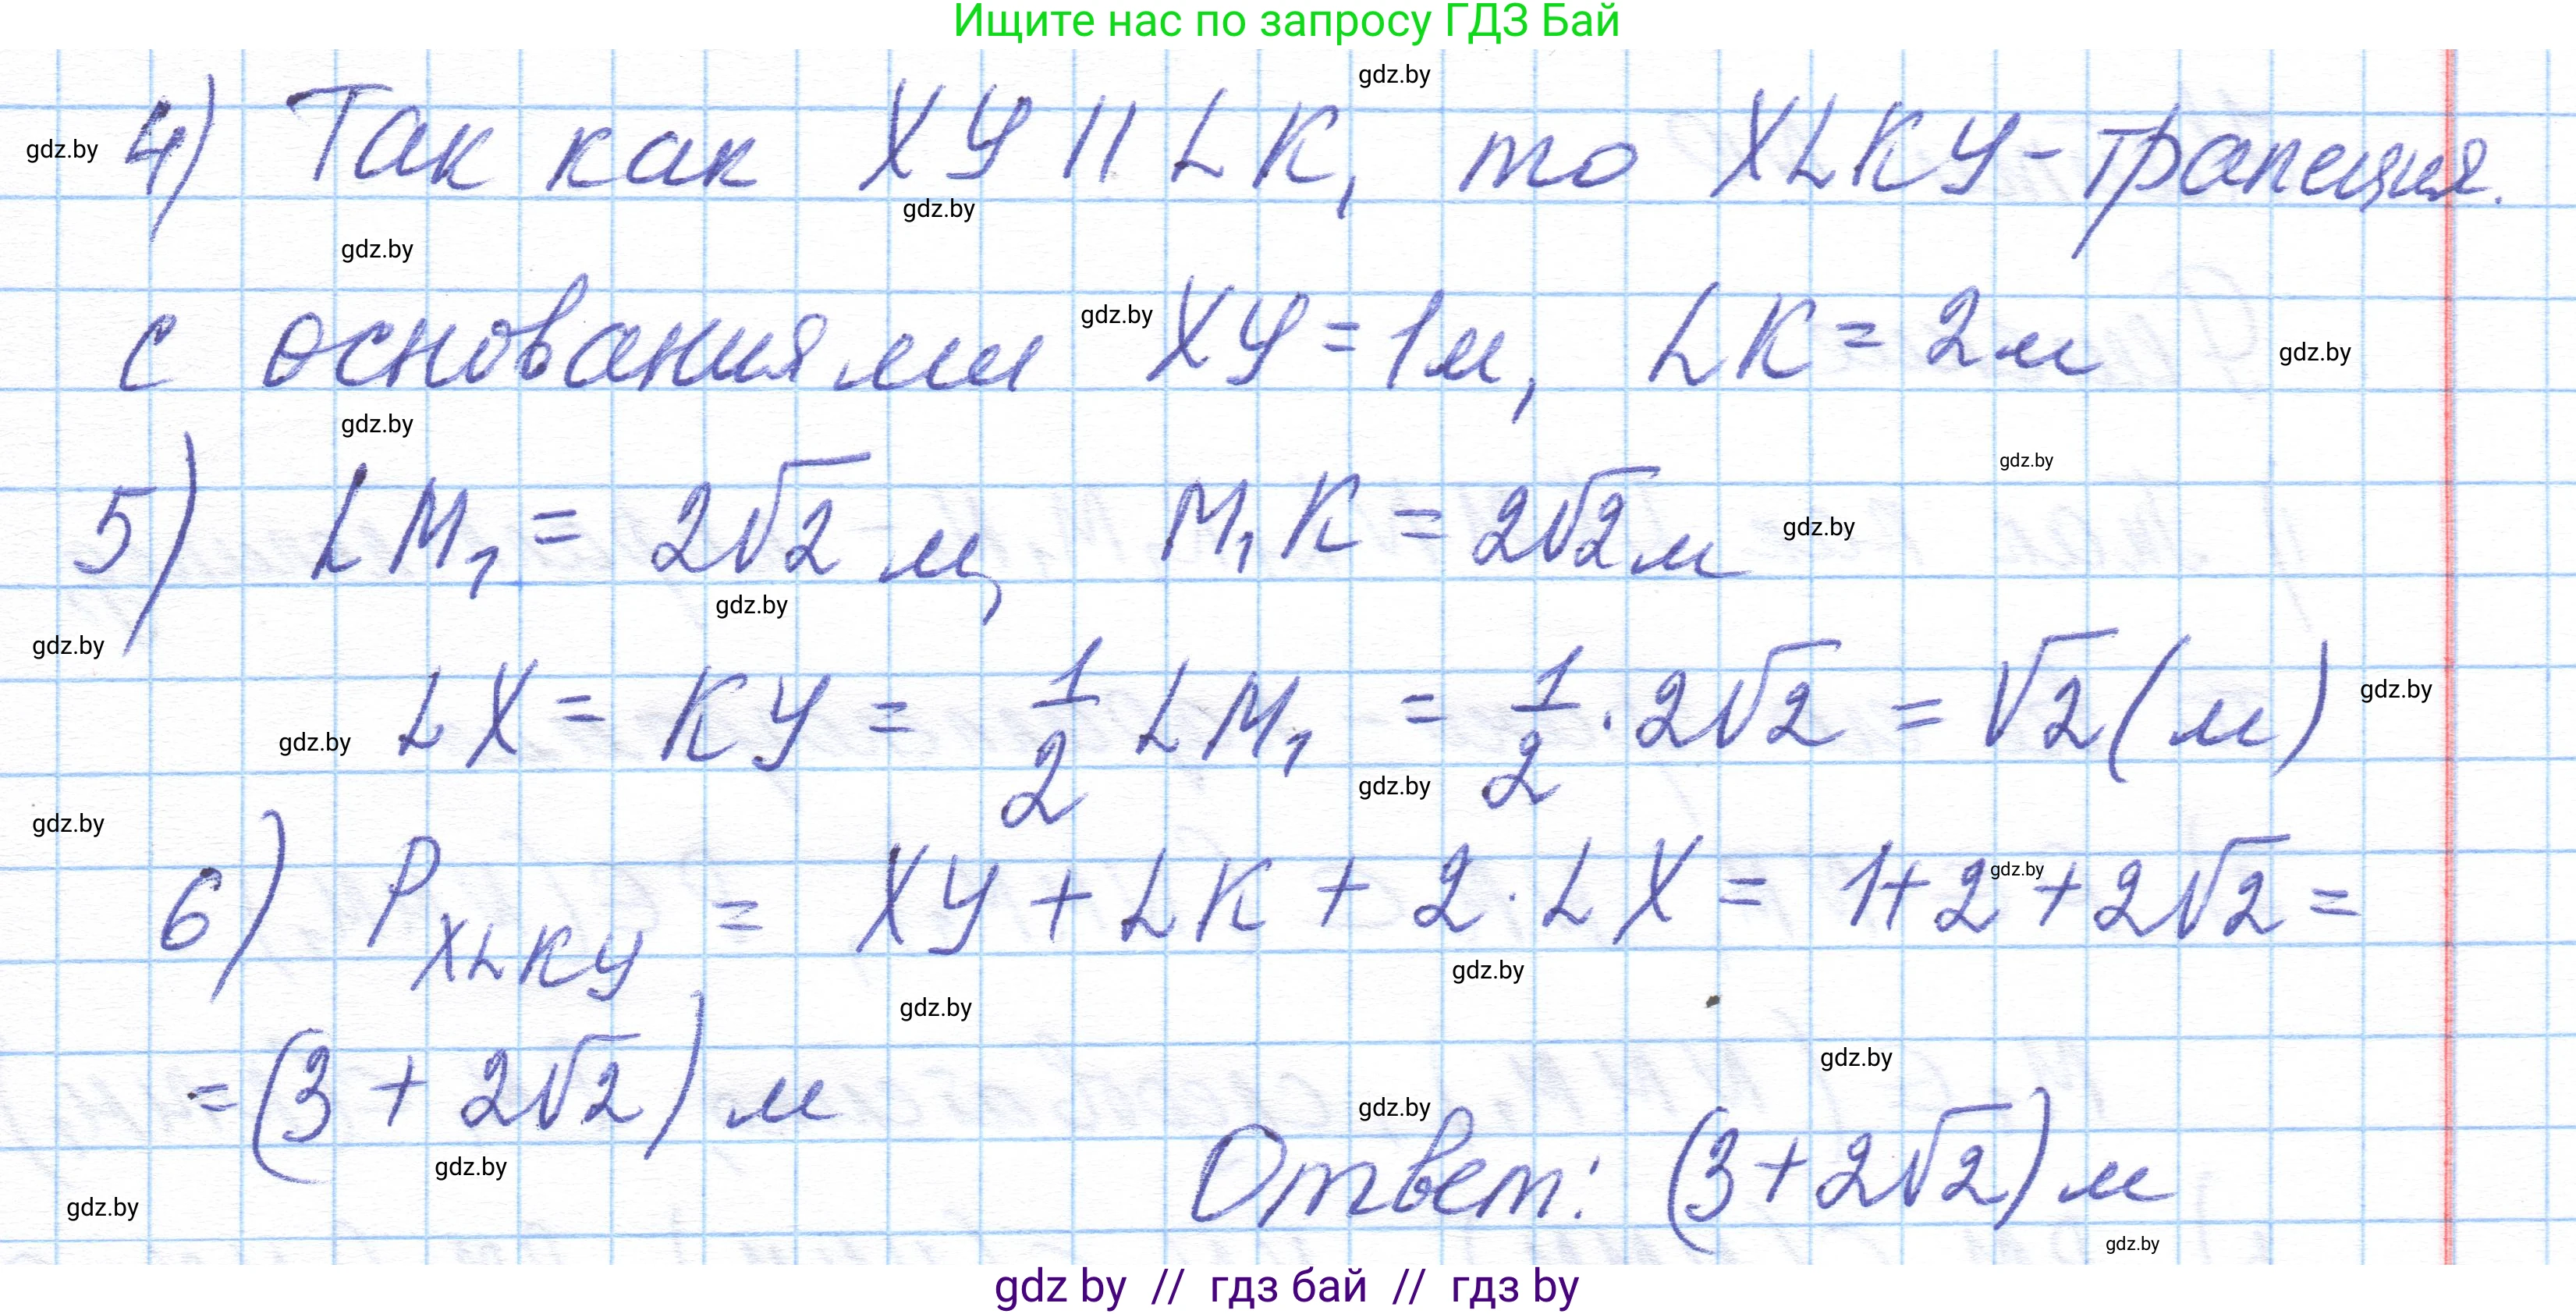 Ищите нас по запросу ГДЗ Бай
gdz.by
4) Так как ХУ || LK, то XLKY - трапеция.
gdz.by
gdz.by
gdz.by
с основаниями ХУ = 1м, LK = 2м
gdz.by
gdz.by
gdz.by
gdz.by
5) LM₁ = 2√2 м, M₁K = 2√2 м
gdz.by
gdz.by
gdz.by
LX = KY = 1/2 LM₁ = 1/2 · 2√2 = √2 (м)
gdz.by
gdz.by
gdz.by
gdz.by
6) P XLKY = XY + LK + 2 · LX = 1 + 2 + 2√2 =
gdz.by
gdz.by
gdz.by
= (3 + 2√2) м
gdz.by
gdz.by
gdz.by
Ответ: (3 + 2√2) м
gdz.by
gdz.by
gdz by // гдз бай // гдз by